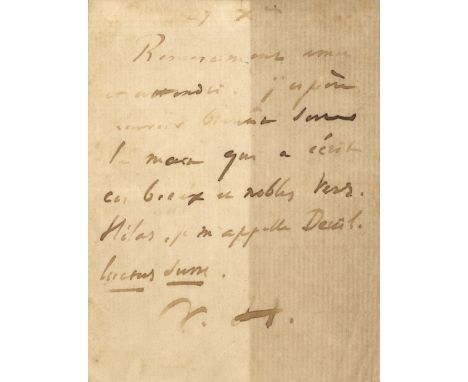 27 Xbre
Remerciement ému
et attendri. j'espère
pouvoir bientôt serrer
la main qui a écrit
ces beaux et nobles vers.
Hélas, je m'appelle Deuil.
Luctus sum.
V. H.